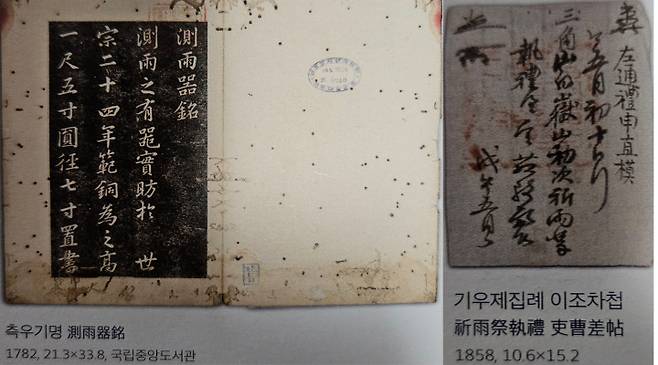 測雨器銘
測雨之有器實昉於 世
宗二十四年範銅為之高
一尺五寸圓徑七寸置書
측우기명 測雨器銘
1782, 21.3×33.8, 국립중앙도서관
左通禮申直模
三角山白嶽山初次祈雨祭
執禮
戊午五月
기우제집례 이조차첩
祈雨祭執禮 吏曹差帖
1858, 10.6×15.2